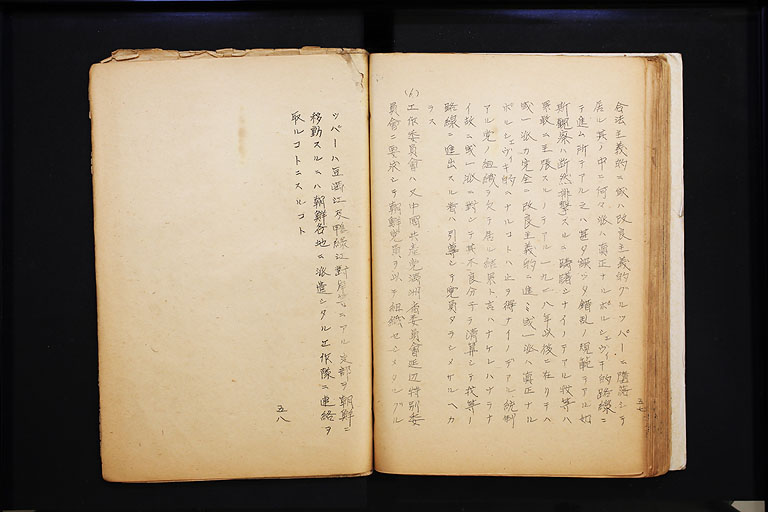 合法主義的ニ或ハ改良主義的グルッパーニ墮落シテ
居ル其ノ中ニ何々派ハ真正ナルボルシェヴィキ的路線ニ
テ進ム所デアル之ハ甚タ誤ツタ錯乱ノ規範デアル如
斯観察ハ断然排撃スルニ躊躇シナイノデアル我等ハ
果敢ニ主張スルノデアル一九二八年以後ニ在リテハ
或一派カ完全ニ改良主義的ニ進ミ或一派ハ真正ナル
ボルシェヴィキ的ニナルコトハ止ヲ得ナイノデアル統制
アル党ノ組織ヲ欠テ居ル結果ト言ハナケレハナラナ
イ故ニ或一派ニ対シテ其不良分子ヲ清算シテ我等ノ
路線ニ進出スル者ハ引導シテ党員タラシメサルヘカ
ラス
(6)
工作委員會ハ又中國共産党満洲省委員會延辺特別委
員會ニ要求シテ朝鮮党員ヲ以テ組織セシメタルグル
五七
ッパーハ豆満江及鴨緑江対岸ニアル支部ヲ朝鮮ニ
移動スルニハ朝鮮各地ニ派遣シタル工作隊ニ連絡ヲ
取ルコトニスルコト
五八